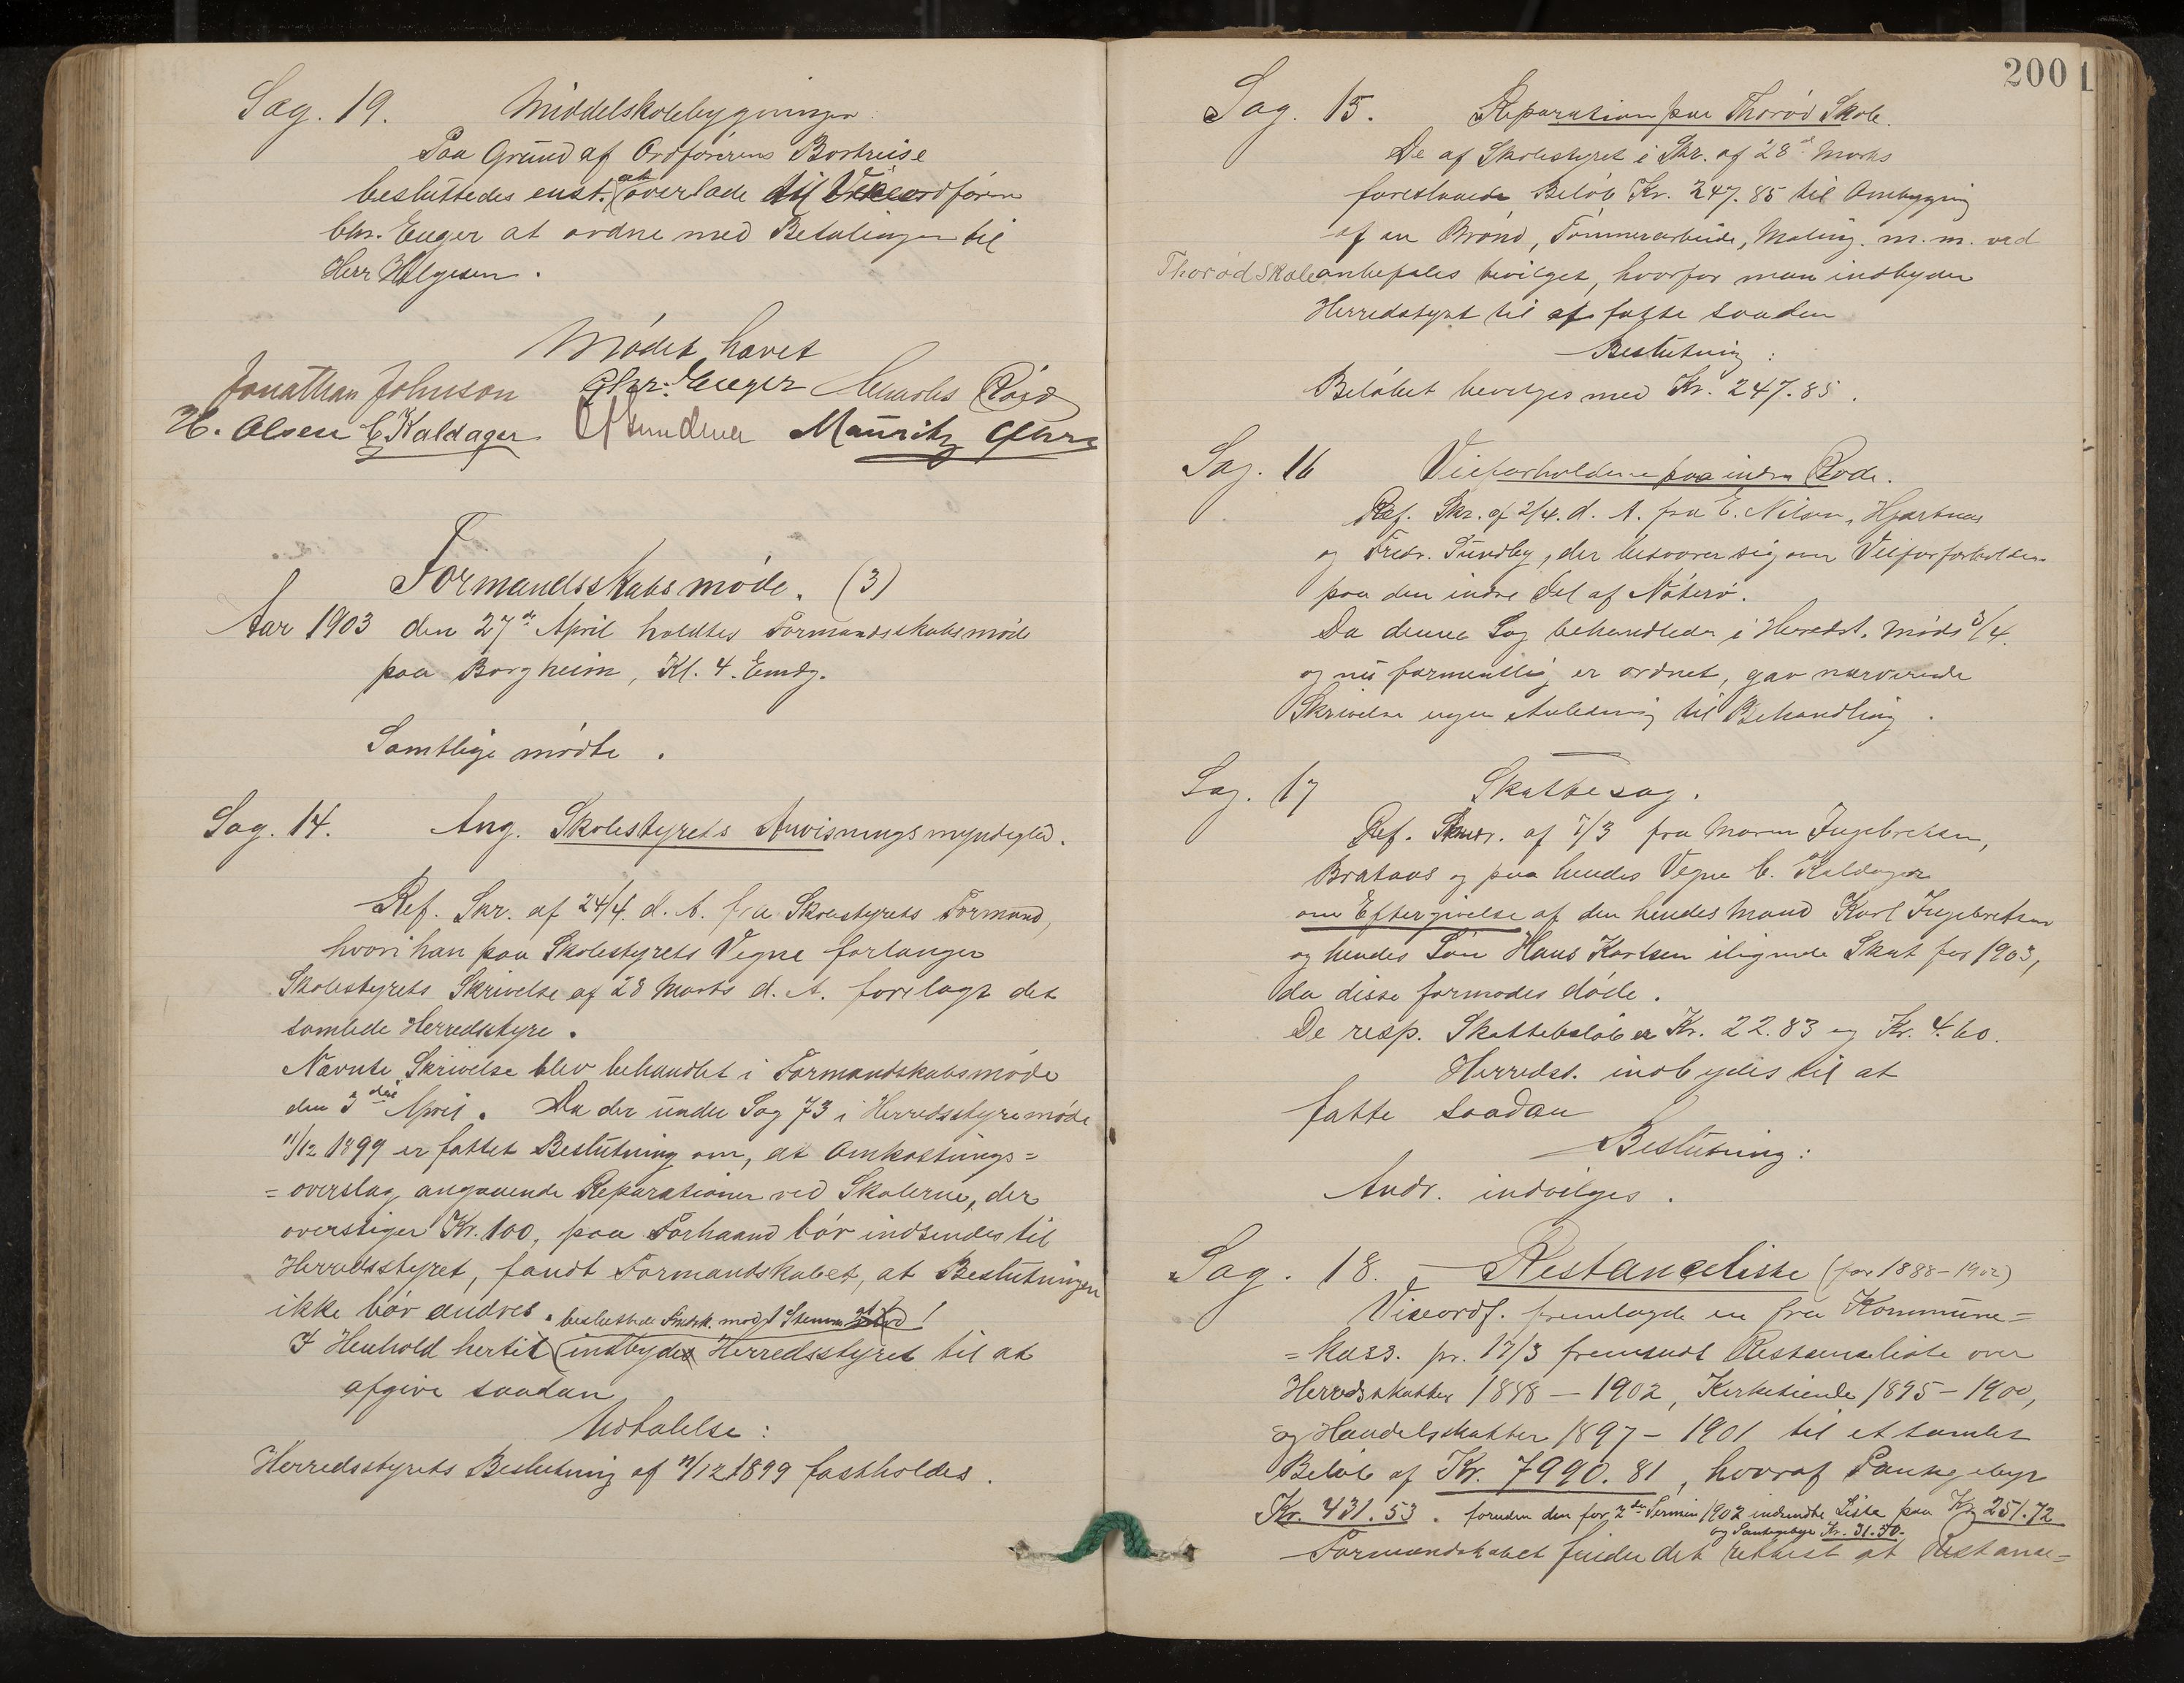 Sag. 19. Middelskolebygningen.
Paa Grund af Ordførerens Bortreise
besluttedes enst. at overlade til Viceordfører
Chr. Enger at ordne med Betalingen til
Herr Helgesen.
Mødet hævet
Jonathan Johnson Chr. Enger Røed
H. Olsen C. Kaldager Mauritz Chrs
Formandsskabsmøde. (3)
Aar 1903 den 27de April holdtes Formandsskabsmøde
paa Borgheim, Kl. 4. Emdg.
Samtlige mødte.
Sag. 14. Ang. Skolestyrets Anvisningsmyndighed.
Ref. Skr. af 24/4. d. A. fra Skolestyrets Formand,
hvori han paa Skolestyrets Vegne forlanger
Skolestyrets Skrivelse af 28 Marts d. A. forelagt det
samlede Herredsstyre.
Nævnte Skrivelse blev behandlet i Formandskabsmøde
den 3die April. Da der under Sag 73 i Herredsstyremøde
11/12 1899 er fattet Beslutning om, at Omkostnings=
=overslag angaaende Reparationer ved Skolerne, der
overstiger Kr. 100, paa Forhaand bør indsendes til
Herredsstyret, fandt Formandskabet, at Beslutningen
ikke bør ændres. besluttede Fmdsk. mod 1 Stemme at
I Henhold hertil indbydes Herredsstyret til at
afgive saadan
Udtalelse:
Herredsstyrets Beslutning af 11/12 1899 fastholdes.
200
Sag. 15. Reparation paa Thorød Skole.
De af Skolestyret i Skr. af 28de Marts
foreslaaede Beløb Kr. 247.85 til Ombygging
af en Brønd, Tømmerarbeide, Maling m.m. ved
Thorød Skole anbefales bevilget, hvorfor man indbyder
Herredsstyret til at fatte saadan
Beslutning:
Beløbet bevilges med Kr. 247.85.
Sag. 16 Veiforholdene paa indre Rode.
Ref. Skr. af 2/4. d. A. fra E. Nilsen, Hjertnæs
og Fredr. Sundby, der besværer sig over Veiforholdene
paa den indre Del af Nøterø.
Da denne Sag behandledes i Herredst. Møde 3/4.
og nu formentlig er ordnet, gav nærværende
Skrivelse ingen Anledning til Behandling.
Sag. 17 Skattesag.
Ref. Andr. af 7/3 fra Maren Ingebretsen,
Brataas og paa hendes Vegne C. Kaldager
om Eftergivelse af den hendes Mand Karl Ingebretsen
og hendes Søn Hans Karlsen ilignede Skat for 1903,
da disse formodes døde.
De resp. Skattebeløb er Kr. 22.83 og Kr. 4.60.
Herredst. indbydes til at
fatte saadan
Beslutning:
Andr. indvilges.
Sag. 18. Restanceliste (for 1888-1902)
Viseordf. fremlagde en fra Kommune=
=kass. pr. 17/3 fremsendt Restanseliste over
Herredsskatter 1888 - 1902, Kirketiende 1895 - 1900,
og Handelsskatter 1897 - 1901 til et samlet
Beløb af Kr. 7990.81, hvoraf Pantegebyr
Kr. 431.53. foruden den for 2den Termin 1902 indsendte Liste paa Kr. 251.72
og Pantegebyr Kr. 31.50.
Formandskabet finder det rettest at Restanse=